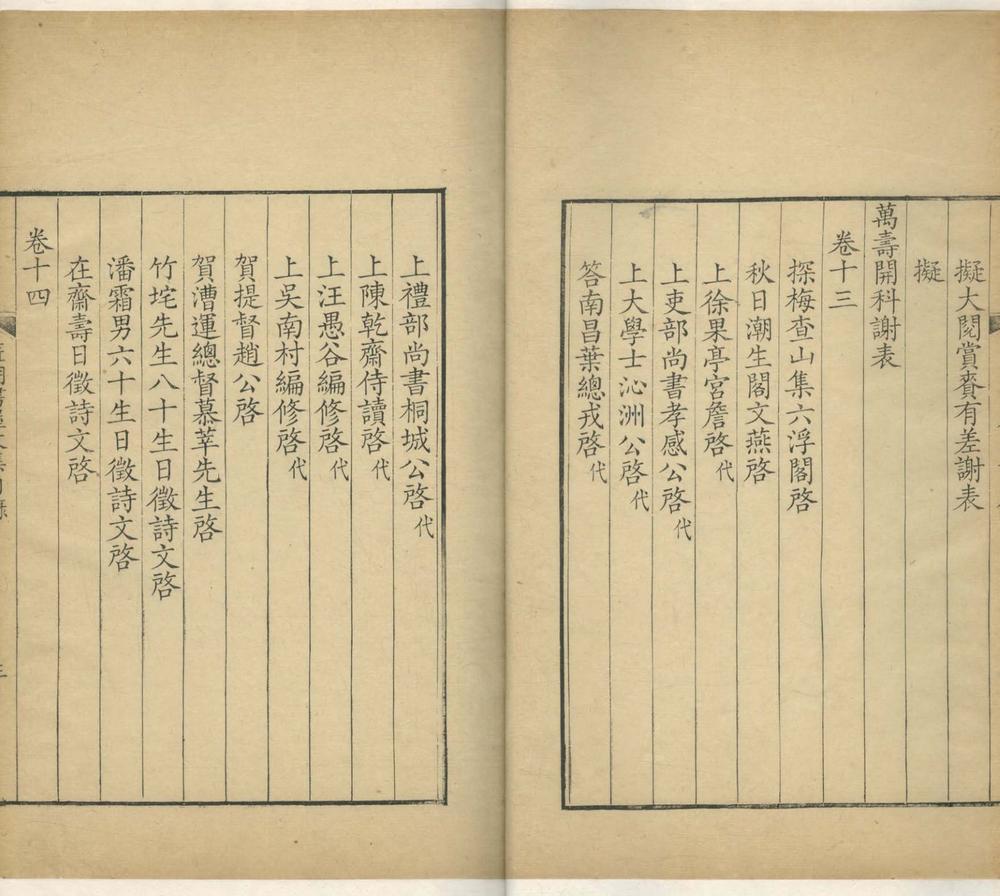 擬大閱賞賚有差謝表
擬
萬壽開科謝表
卷十三
探梅查山集六浮閣啓
秋日潮生閣文燕啓
上徐果亭宮詹啓代
上吏部尚書孝感公啓代
上大學士沁洲公啓代
答南昌葉總戎啓代
上禮部尚書桐城公啓代
上陳乾齋侍讀啓代
上汪愚谷編修啓代
上吳南村編修啓代
賀提督趙公啓
賀漕運總督慕莘先生啓
竹垞先生八十生日徵詩文啓
潘霜男六十生日徵詩文啓
在齋壽日徵詩文啓
卷十四